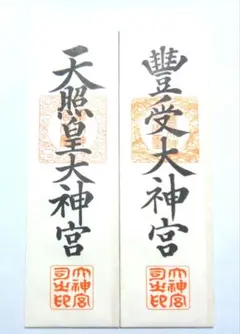 豐受大神宮
大神宮
司之印
天照皇大神宮
大神宮
司之印